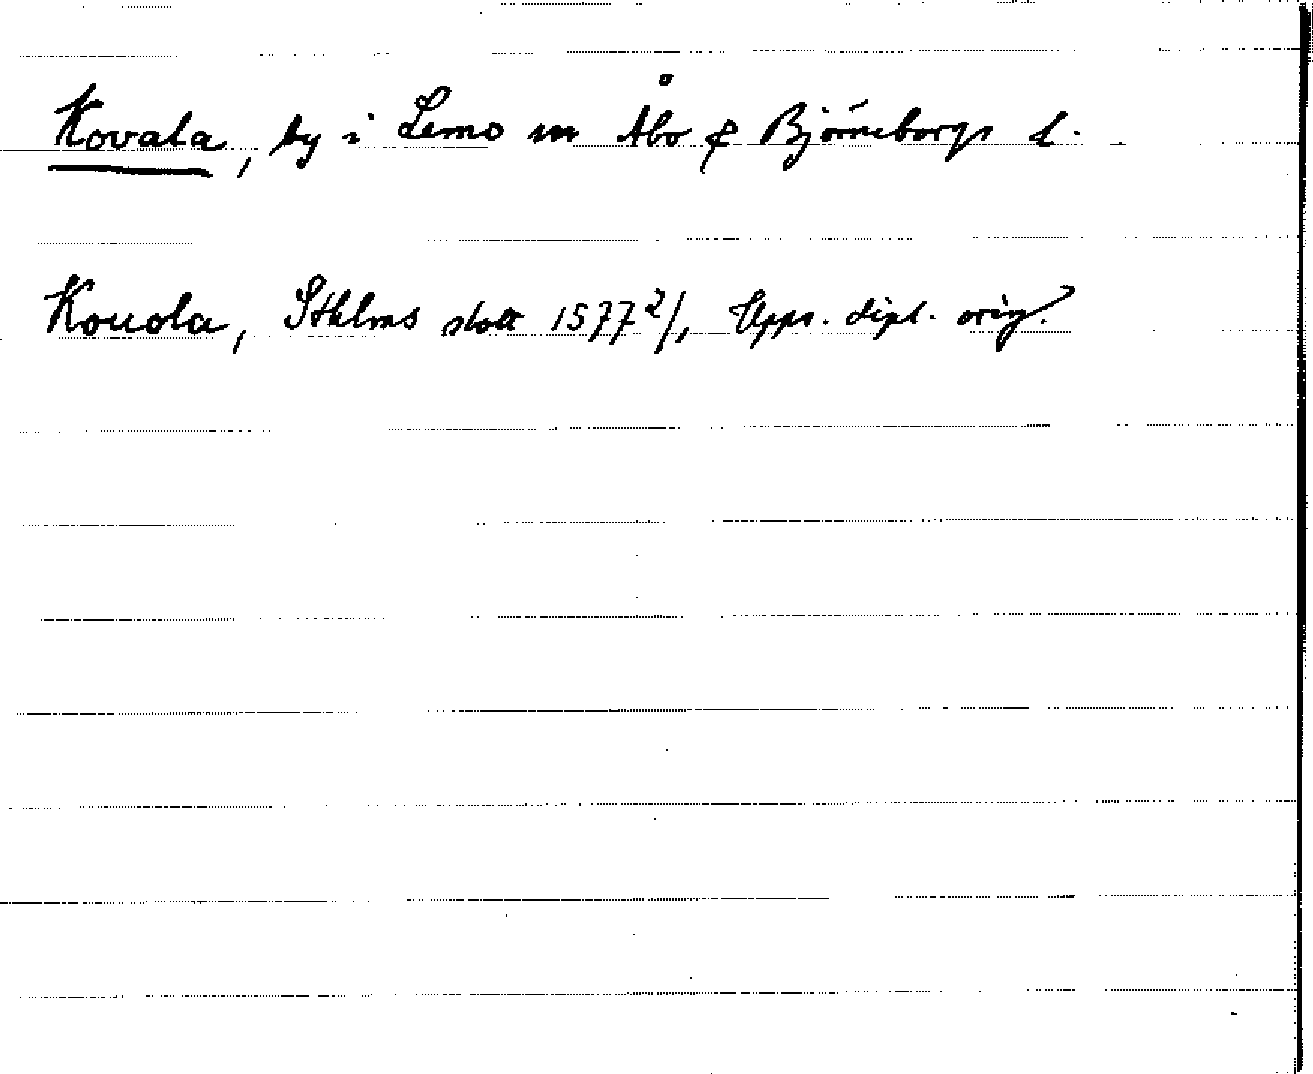 Kovala, by i Lemo sn Åbo & Björneborgs l.
Kouola, Sthlms slott 1577 2/1, Upps. dipl. orig.